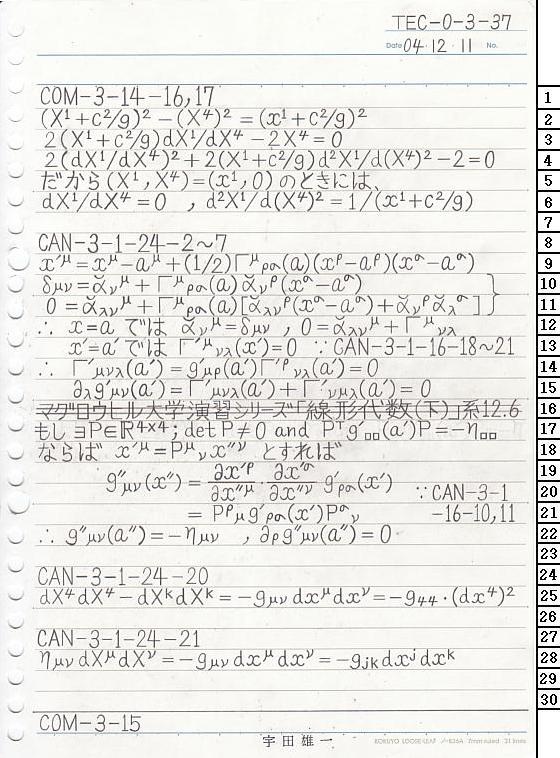 TEC-0-3-37
Date 04・12・11 No.
COM-3-14-16,17
(X¹+c²/g)²-(X⁴)²=(x¹+c²/g)²
2(X¹+c²/g)dX¹/dX⁴-2X⁴=0
2(dX¹/dX⁴)²+2(X¹+c²/g)d²X¹/d(X⁴)²-2=0
だから(X¹,X⁴)=(x¹,0)のときには、
dX¹/dX⁴=0 , d²X¹/d(X⁴)²=1/(x¹+c²/g)
CAN-3-1-24-2~7
x'^μ=x^μ-a^μ+(1/2)Γ^μ_ρσ(a)(x^ρ-a^ρ)(x^σ-a^σ)
δ_μν=ἄ_ν^μ+Γ^μ_ρσ(a)ἄ_ν^ρ(x^σ-a^σ)
0=ἄ_λν^μ+Γ^μ_ρσ(a)[ἄ_λν^ρ(x^σ-a^σ)+ἄ_ν^ρἄ_λ^σ]
∴ x=a では ἄ_ν^μ=δ_μν , 0=ἄ_λν^μ+Γ^μ_νλ
x'=a'では Γ'^μ_νλ(x')=0 ∵CAN-3-1-16-18~21
∴ Γ'_μνλ(a')=g'_μρ(a)Γ'^ρ_νλ(a')=0
∂_λg'_μν(a')=Γ'_μνλ(a')+Γ'_νμλ(a')=0
マグロウヒル大学演習シリーズ「線形代数(下)」系12.6
もし ∃P∈ℝ^4×4; det P≠0 and P^T g'_□□(a')P=-η_□□
ならば x'^μ=P^μ_ν x''^ν とすれば
g''_μν(x'')=∂x'^ρ/∂x''^μ・∂x'^σ/∂x''^ν g'_ρσ(x')
∵CAN-3-1
=P^ρ_μ g'_ρσ(x')P^σ_ν -16-10,11
∴ g''_μν(a'')=-η_μν , ∂_ρg''_μν(a'')=0
CAN-3-1-24-20
dX⁴dX⁴-dX^kdX^k=-g_μν dx^μdx^ν=-g₄₄・(dx⁴)²
CAN-3-1-24-21
η_μν dX^μdX^ν=-g_μν dx^μdx^ν=-g_jk dx^jdx^k
COM-3-15
宇田雄一
KOKUYO LOOSE-LEAF ノ-836A 7mm ruled 31 lines
1
2
3
4
5
6
7
8
9
10
11
12
13
14
15
16
17
18
19
20
21
22
23
24
25
26
27
28
29
30